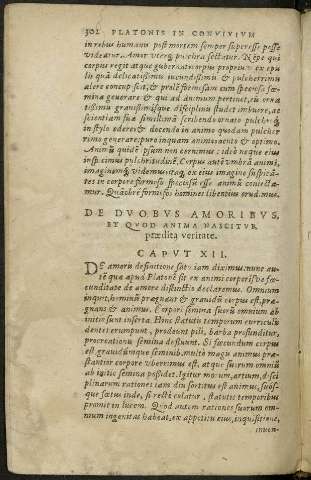 302 PLATONIS IN CONVIVIVM
in rebus humanis post mortem semper superesse posse
videatur. Amor uterq; pulchra sectatur. Nempe qui
corpus regit atque gubernat corpus proprium ex epu
lis quàm delicatissimis iucundissimis & pulcherrimis
alere concupiscit, & prolem formosam cum speciosa fœ
mina generare & qui ad animum pertinet, eum orna
tissimis gratissimisque disciplinis studet imbuere, ac
scientiam suæ simillimam scribendo ornato pulchroq;
in stylo edere & docendo in animo quodam pulcher
rimo generare: puro inquam animo acutis & optimo.
Animum quidem ipsum non cernimus: ideo neque eius
inspicimus pulchritudinem. Corpus autem umbram animi,
imaginemq; videmus itaq; ex eius imagine suspican
tes in corpore formoso speciosum esse animum coniecta-
mur. Quàobrem formosos homines libentius erudimus.
DE DVOBVS AMORIBVS,
ET QVOD ANIMA NASCITVR
prædita veritate.
CAPVT XII.
DE amoris definitione satis iam diximus, nunc au-
tem quæ apud Platonem sit ex animi corporisve fœ
cunditate de amore distinctio declaremus. Omnium
inquit, hominum prægnans & gravidum corpus est, præ-
gnans & animus. Corpori semina suorum omnium ab
initio sunt inserta. Hinc statutis temporum curriculis
dentes erumpunt, prodeunt pili, barba profunditur,
procreationis semina defluunt. Si fœcundum corpus
est gravidumque seminibus, multo magis animus præ-
stantior corpore uberrimus est, atque suorum omnium
ab initio semina possidet. Igitur morum, artium, disci
plinarum rationes iam diu sortitus est animus, suosq-
que fœtus inde, si rectè colatur, statutis temporibus
promit in lucem. Quod autem rationes suorum om-
nium ingenitas habeat, ex appetitu eius, inquisitione,
inven-